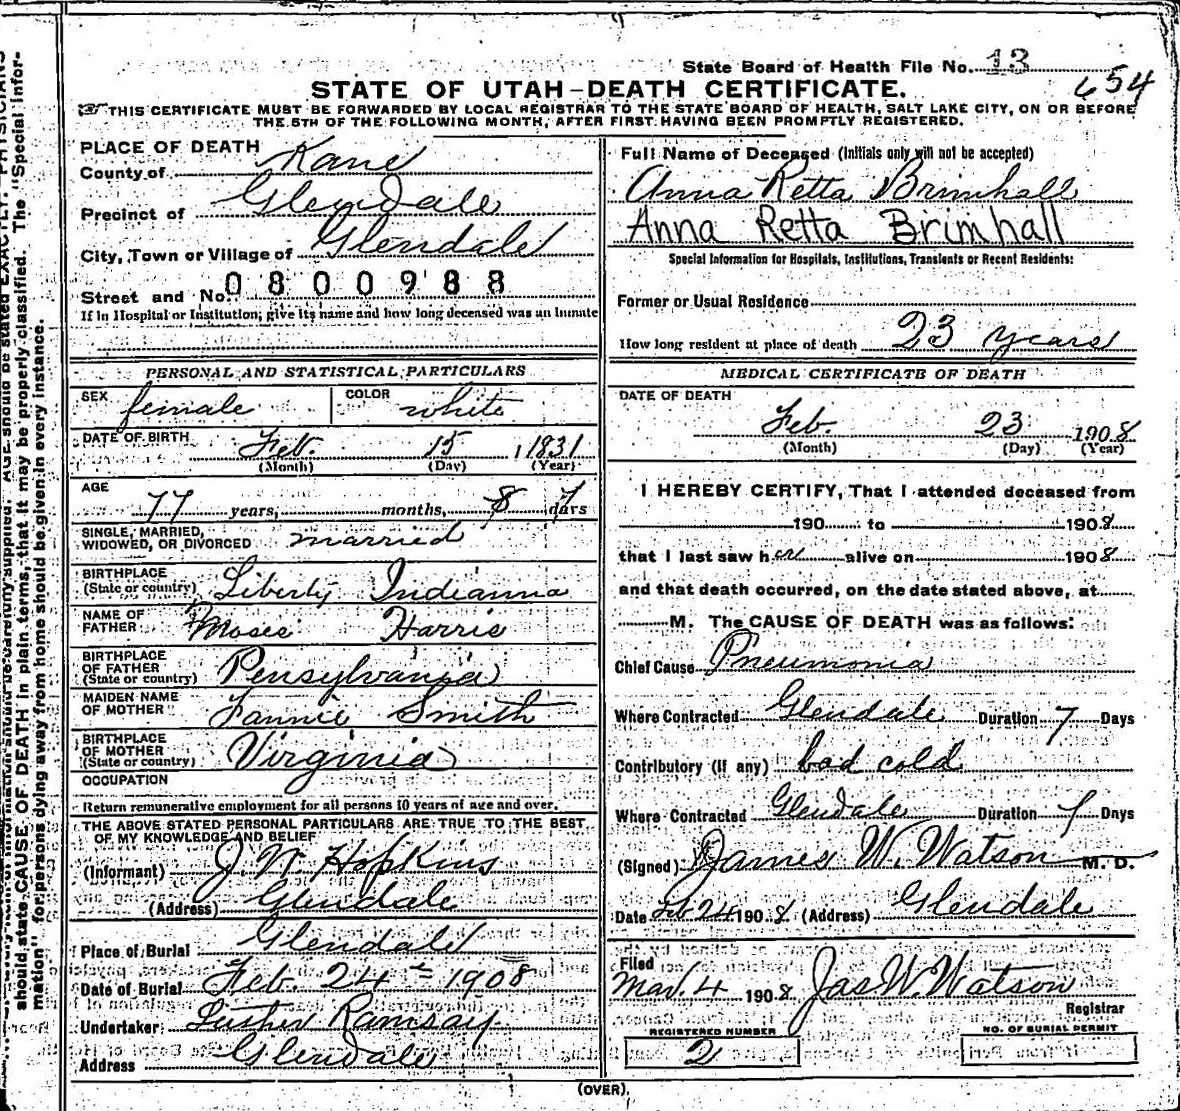 State Board of Health File No. 13
654
STATE OF UTAH—DEATH CERTIFICATE.
THIS CERTIFICATE MUST BE FORWARDED BY LOCAL REGISTRAR TO THE STATE BOARD OF HEALTH, SALT LAKE CITY, ON OR BEFORE
THE 5TH OF THE FOLLOWING MONTH, AFTER FIRST HAVING BEEN PROMPTLY REGISTERED.
PLACE OF DEATH
County of Kane
Precinct of Glendale
City, Town or Village of Glendale
Street and No. 0800988
If in Hospital or Institution, give its name and how long deceased was an inmate
PERSONAL AND STATISTICAL PARTICULARS
SEX female COLOR white
DATE OF BIRTH Feb. 15, 1831
(Month) (Day) (Year)
AGE
77 years, months, 8 7 days
SINGLE, MARRIED,
WIDOWED, OR DIVORCED married
BIRTHPLACE
(State or country) Liberty Indianna
NAME OF
FATHER Moses Harris
BIRTHPLACE
OF FATHER
(State or country) Pensylvania
MAIDEN NAME
OF MOTHER Fannie Smith
BIRTHPLACE
OF MOTHER
(State or country) Virginia
OCCUPATION
Return remunerative employment for all persons 10 years of age and over.
THE ABOVE STATED PERSONAL PARTICULARS ARE TRUE TO THE BEST
OF MY KNOWLEDGE AND BELIEF
(Informant) J. W. Hopkins
(Address) Glendale
Place of Burial Glendale
Date of Burial Feb. 24th 1908
Undertaker Ramsay
Address Glendale
Full Name of Deceased (Initials only will not be accepted)
Anna Retta Brimhall
Anna Retta Brimhall
Special Information for Hospitals, Institutions, Transients or Recent Residents:
Former or Usual Residence
How long resident at place of death 23 years
MEDICAL CERTIFICATE OF DEATH
DATE OF DEATH
Feb. 23 1908
(Month) (Day) (Year)
I HEREBY CERTIFY, That I attended deceased from
190 to 1908
that I last saw her alive on 1908
and that death occurred, on the date stated above, at
M. The CAUSE OF DEATH was as follows:
Chief Cause Pneumonia
Where Contracted Glendale Duration 7 Days
Contributory (if any) bad cold
Where Contracted Glendale Duration 7 Days
(Signed) James W. Watson M. D.
Date Feb 24 1908 (Address) Glendale
Filed
Mar. 4 1908 Jas W. Watson
Registrar
REGISTERED NUMBER
2
NO. OF BURIAL PERMIT
(OVER).
should state CAUSE OF DEATH in plain terms, that it may be properly classified. The "Special Infor-
mation" for persons dying away from home should be given in every instance.